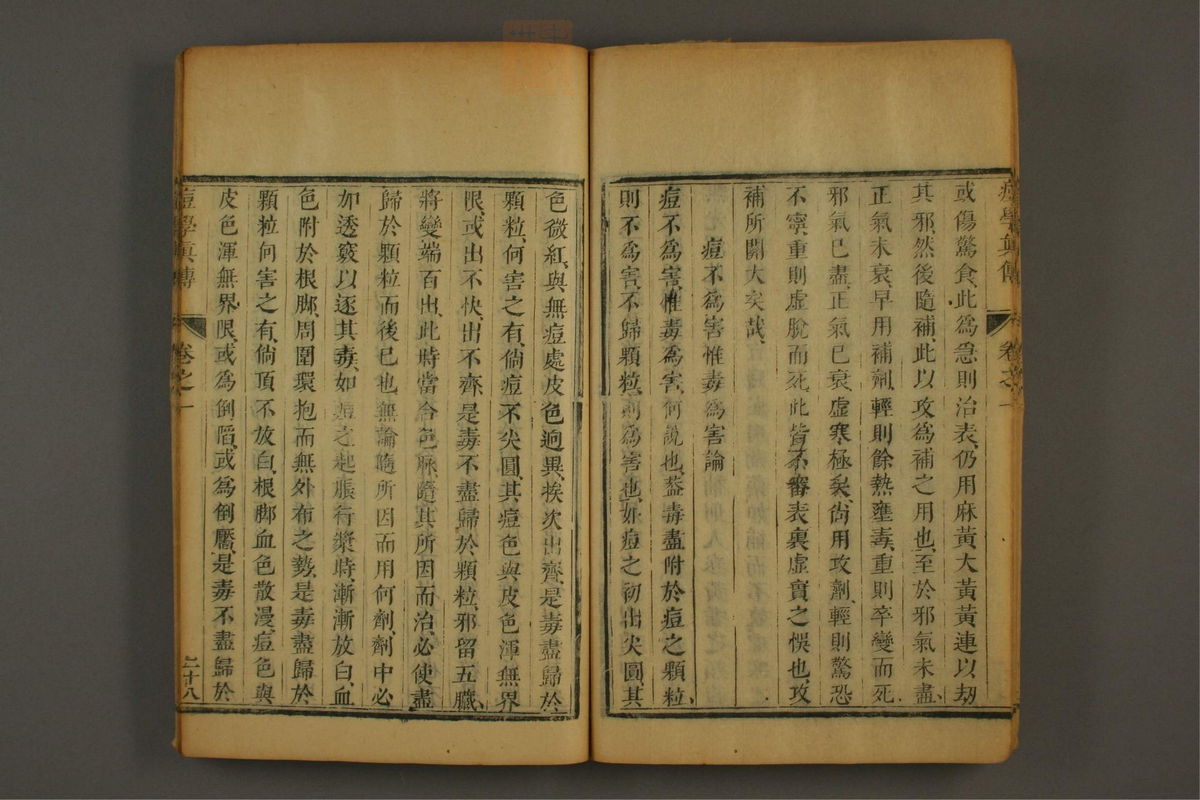 痘學真傳
卷之一
或傷驚食、此為急則治表、仍用麻黃大黃黃連以劫
其邪、然後隨補、此以攻為補之用也、至於邪氣未盡、
正氣未衰、早用補劑、輕則餘熱壅毒、重則卒變而死
邪氣已盡、正氣已衰、虛寒極矣、尙用攻劑、輕則驚恐
不寧、重則虛脫而死、此皆不審表裏虛實之悞也、攻
補所關大矣哉、
痘不為害惟毒為害論
痘不為害、惟毒為害、何說也、葢毒盡附於痘之顆粒、
則不為害、不歸顆粒、則為害也、如痘之初出尖圓、其
色微紅、與無痘處皮色逈異、挨次出齊、是毒盡歸於
顆粒、何害之有、倘痘不尖圓、其痘色與皮色渾無界
限、或出不快、出不齊、是毒不盡歸於顆粒、邪留五臟、
將變端百出、此時當合色脉、隨其所因而治、必使盡
歸於顆粒而後已也、無論隨所因而用何劑、劑中必
加透竅以逐其毒、如痘之起脹行漿時、漸漸放白、血
色附於根脚、周圍環抱、而無外布之勢、是毒盡歸於
顆粒、何害之有、倘頂不放白、根脚血色散漫、痘色與
皮色渾無界限、或為倒陷、或為倒靨、是毒不盡歸於
痘學真傳
卷之一
二十八